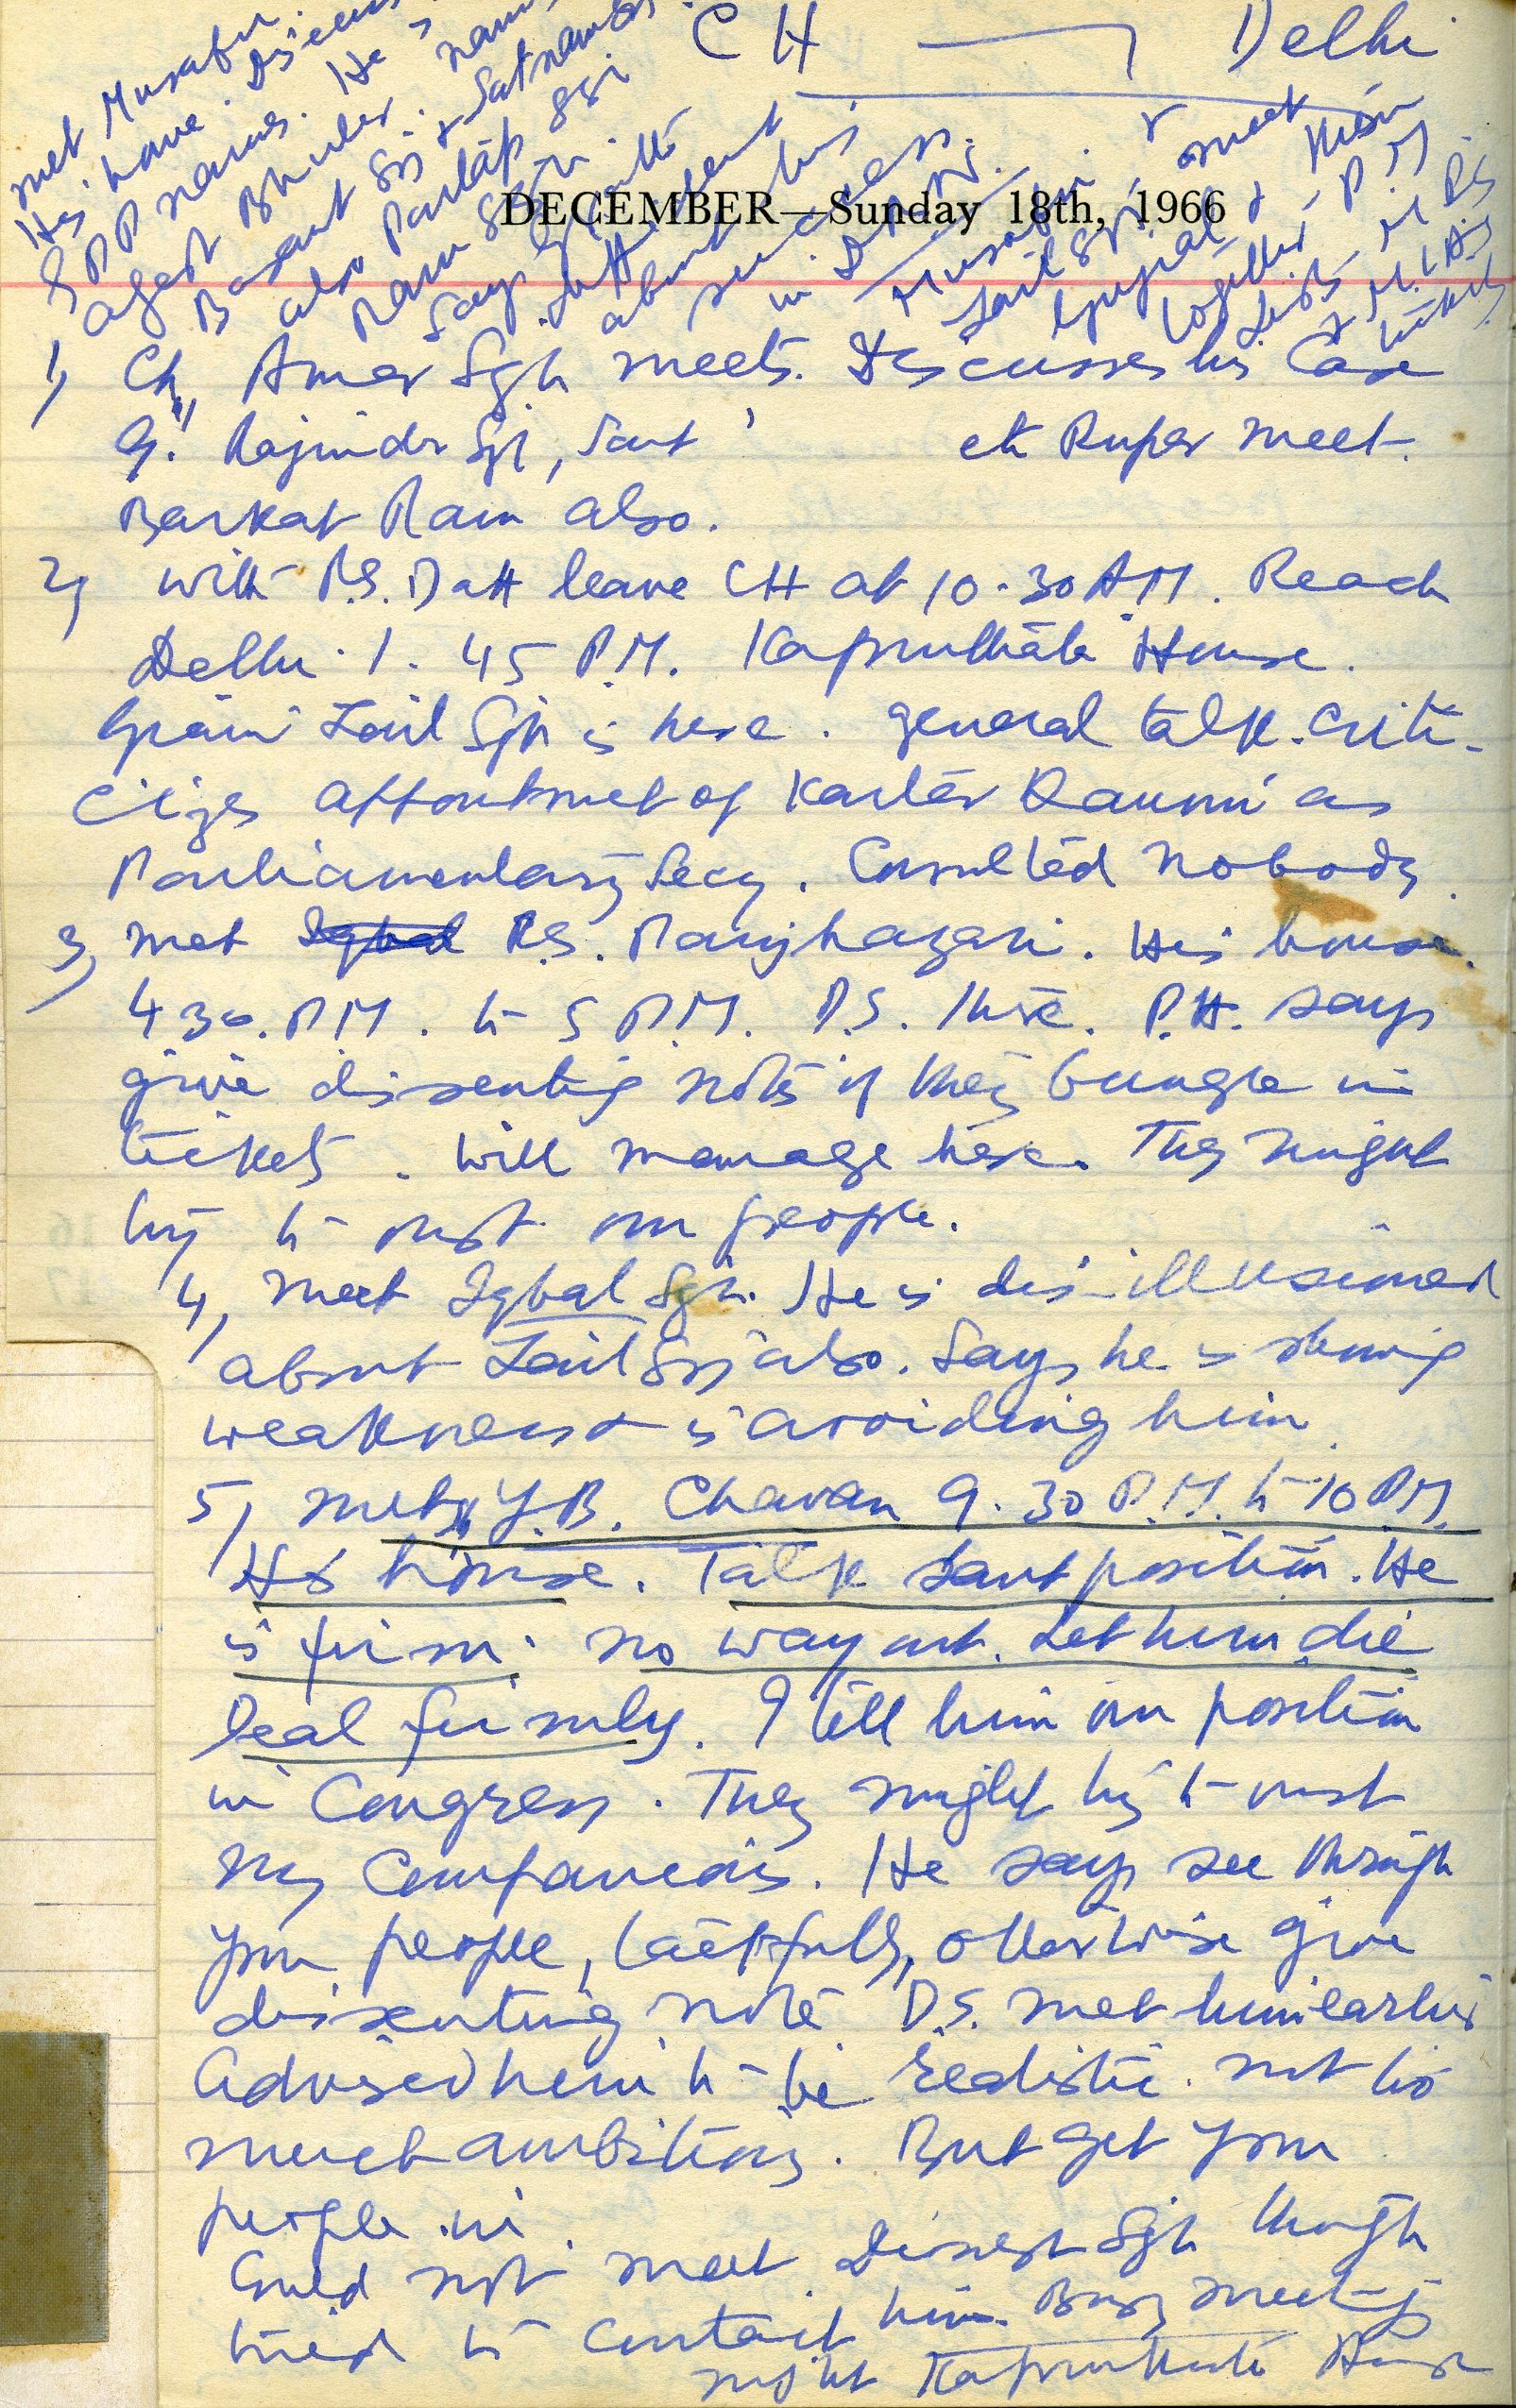 CH — Delhi
met Musafir
His have. Discuss
SPP names. He is
agest Bhuller.
Basant Sgh & Satnam
also Partap Sgh
Ram Sgh
says
about his
success
in
Musafir & meet
Zail Sgh
Gurdial & them
together. P.M
Lists M.Ps
& M.L.As
tickets
DECEMBER—Sunday 18th, 1966
1) Ch. Amar Sgh meets. Discusses his Case
G. Rajinder Sgh, Sant etc Ruper meet.
Barkat Ram also.
2) With P.S. Datt leave CH at 10-30 A.M. Reach
Delhi 1.45 P.M. Kapurthala House.
Giani Zail Sgh is here. General talk. Criti-
cizes appointmet of Kartar as
Parliamentary Secy. Consulted nobody.
3) Met Iqbal R.S. Panjhazari. His house.
4.30. P.M. to 5 P.M. P.S. there. P.H. says
give dissenting note if they bungle in
tickets. Will manage here. They might
try to oust our people.
4) Meet Iqbal Sgh. He is dis-illusioned
about Zail Sgh also. Says he is showing
weakness & is avoiding him.
5) Met Y.B. Chavan 9.30 P.M. to 10 P.M.
His house. Talk Sant position. He
is firm. No way out. Let him die
Deal firmly. I tell him our position
in Congress. They might try to oust
my Companions. He says see through
your people, tactfully, otherwise give
dissenting note. D.S. met him earlier
Advised him to be realistic. not too
much ambitious. But get your
people in.
Could not meet Dinesh Sgh though
tried to contact him. Busy meeting
night Kapurthala House